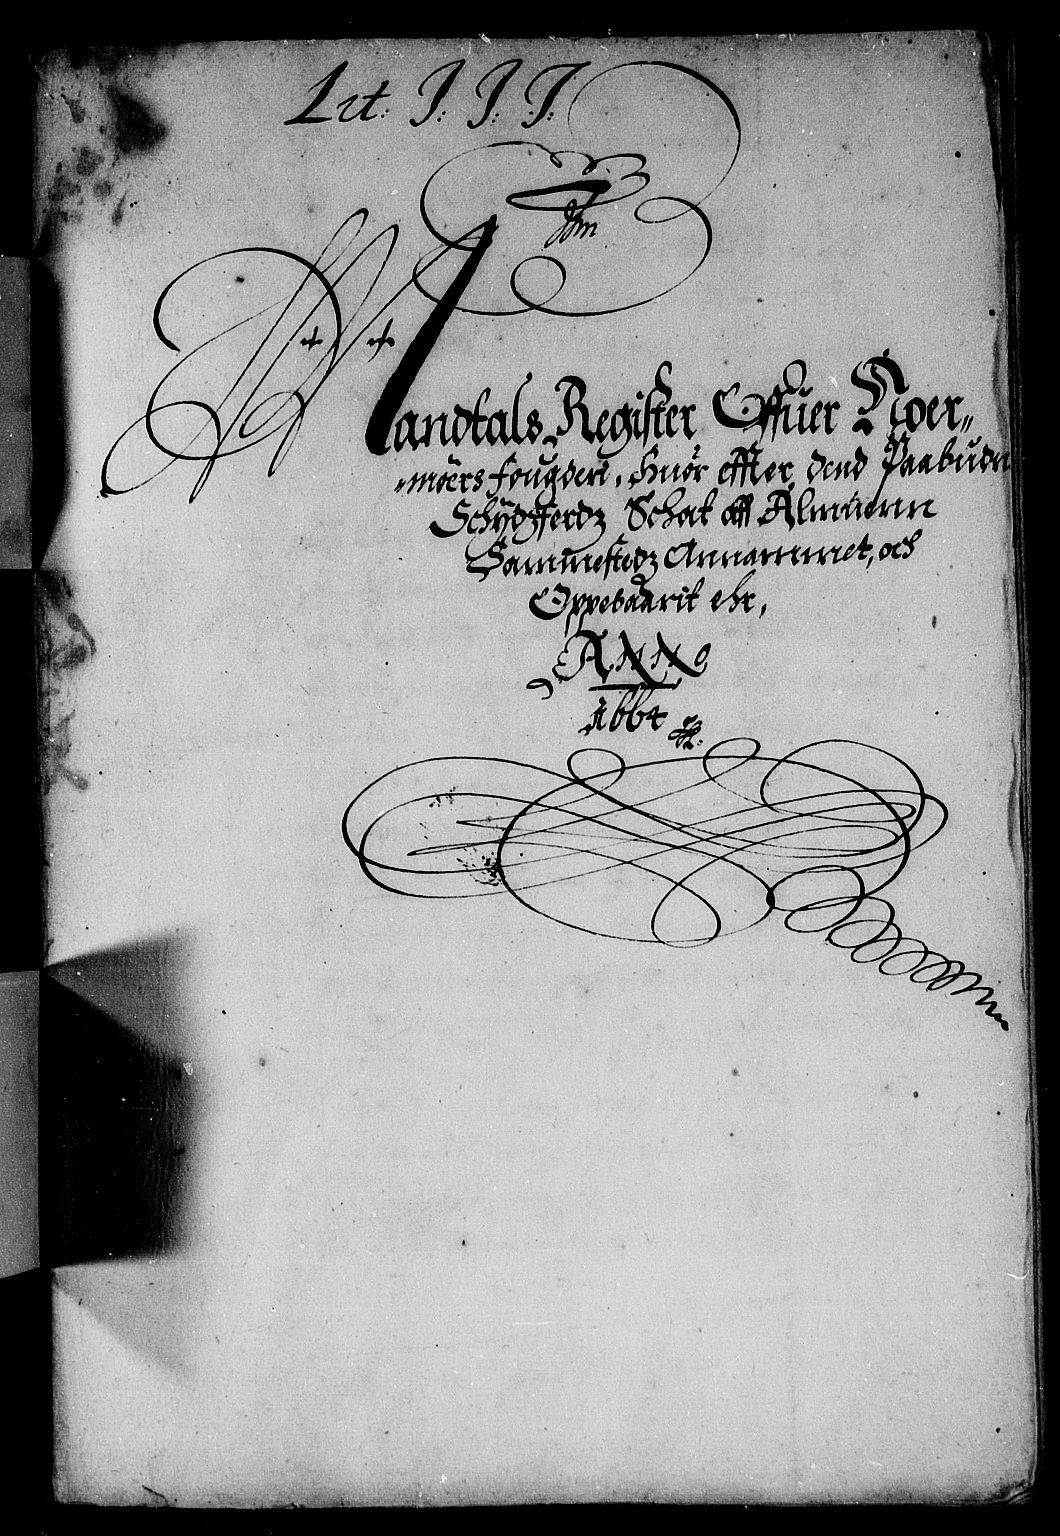 Lit: J: J: J:
Mandtals Register Offuer Noer„
„möers fougderi, huor effter dend Paabudne
Schÿdzferdz Schat aff Almuenn
Sammestedz Annammet, och
Oppebaarit ehr,
ANNO
1664